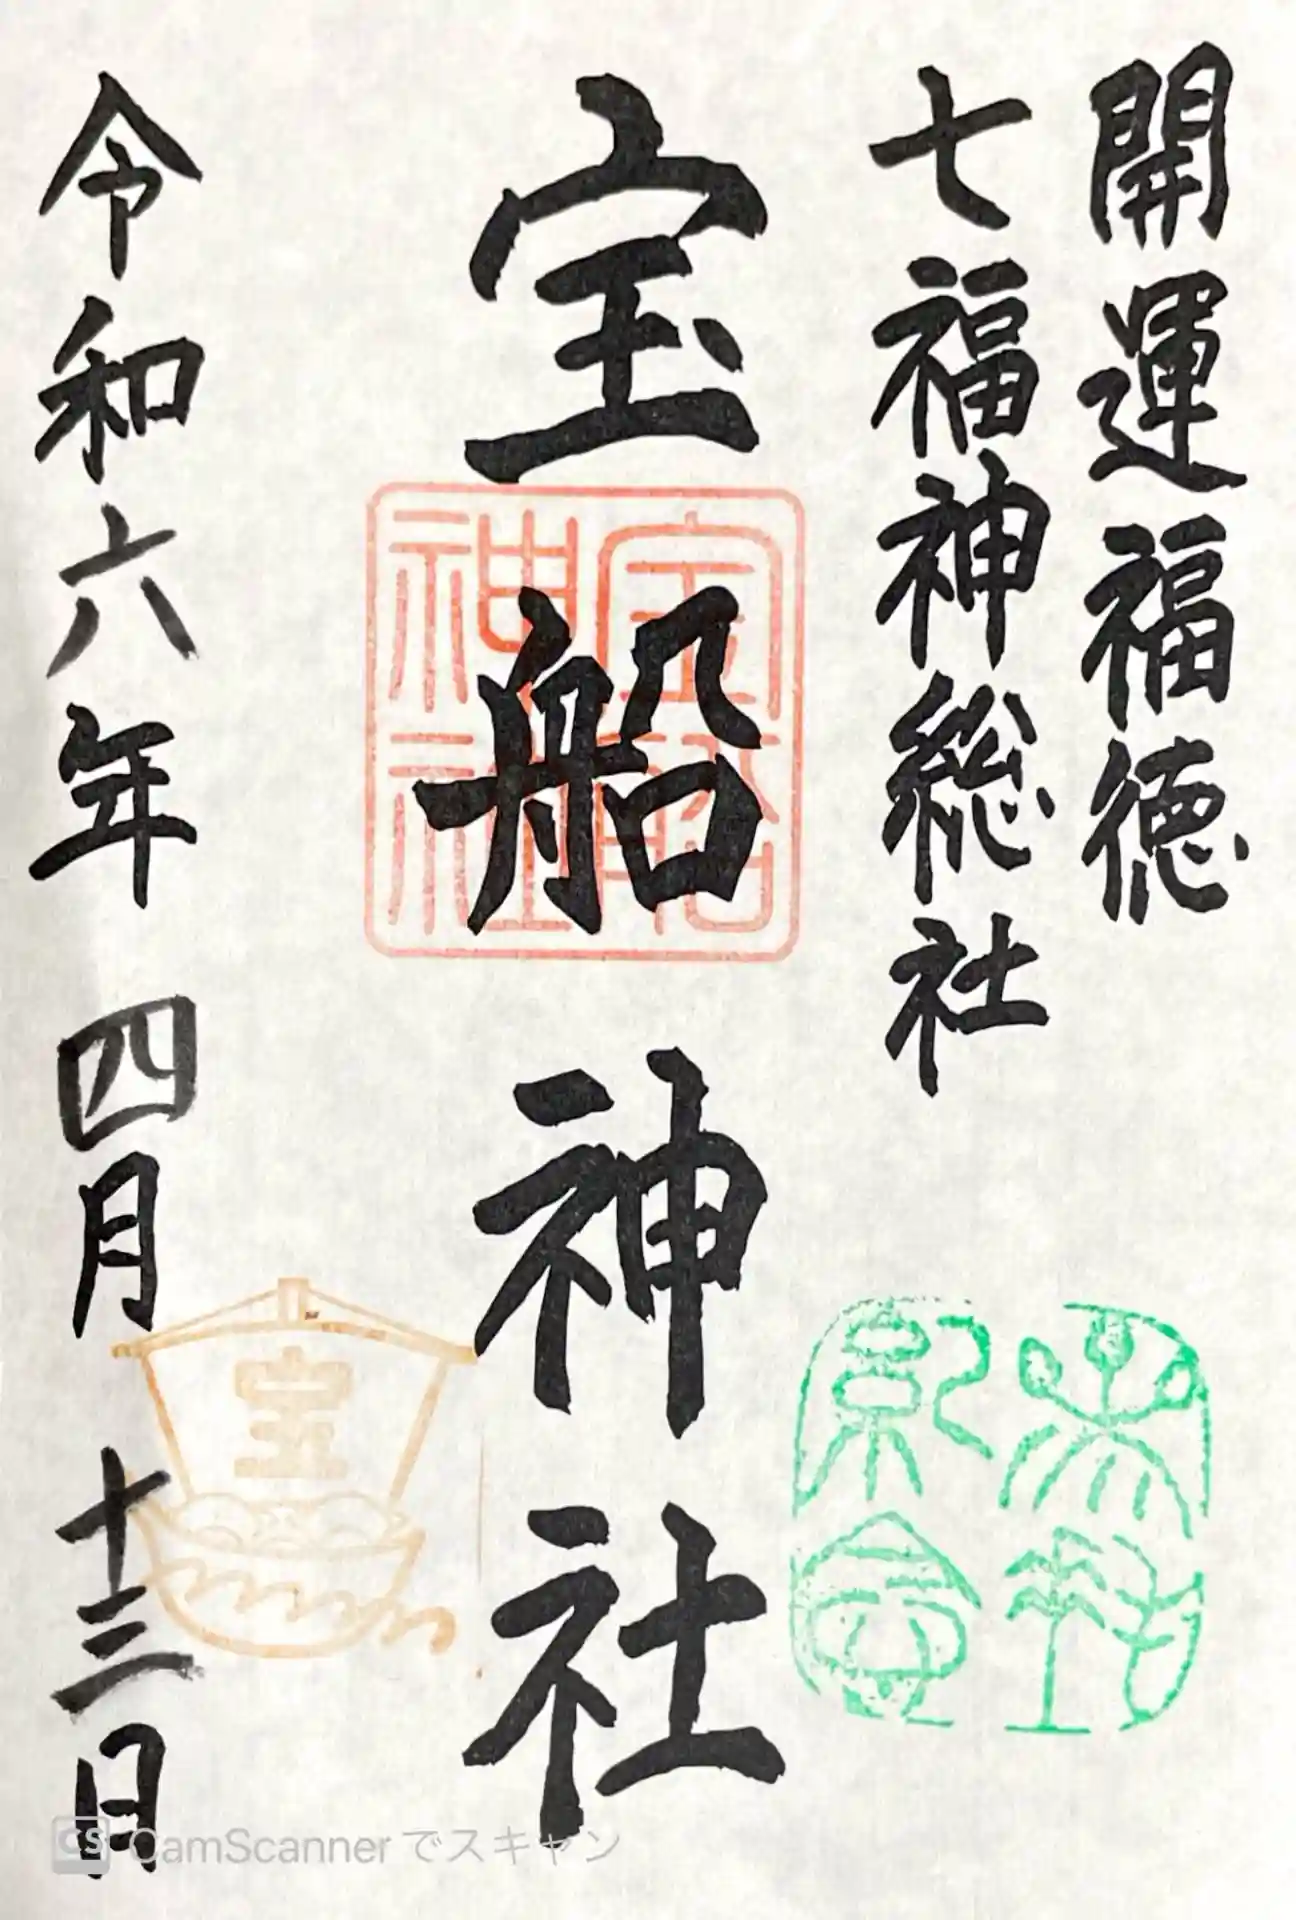 開運福徳
七福神総社
宝船神社
宝船
神社
宝
令和六年 四月 十三日
CS CamScanner でスキャン